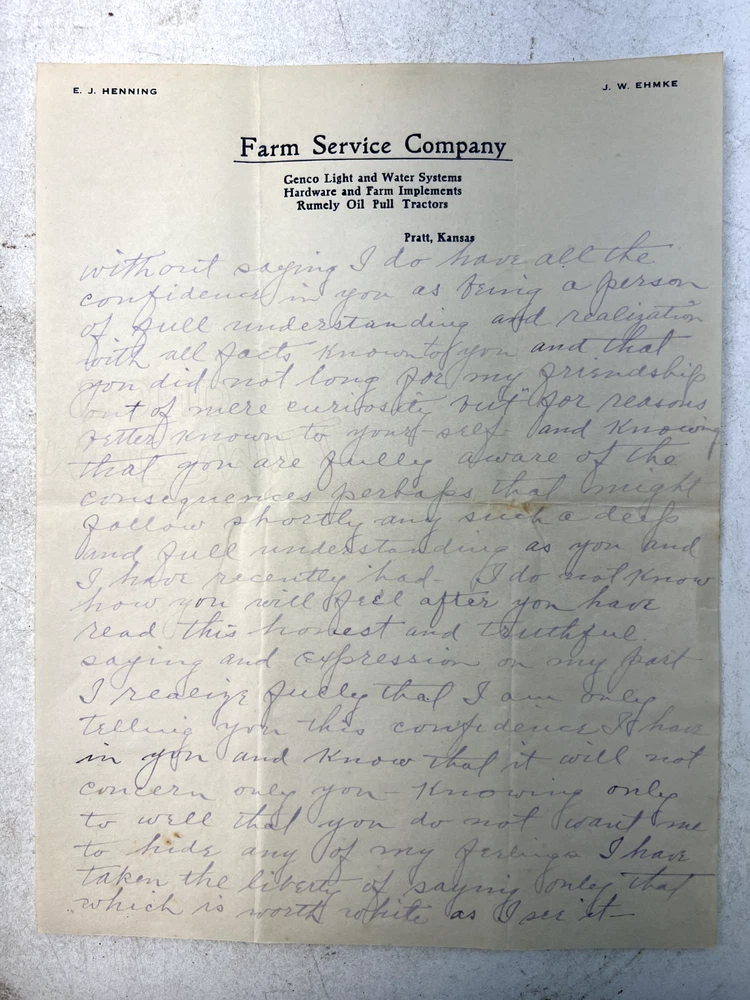 E. J. HENNING
J. W. EHMKE
Farm Service Company
Genco Light and Water Systems
Hardware and Farm Implements
Rumely Oil Pull Tractors
Pratt, Kansas
without saying I do have all the
confidence in you as being a person
of full understanding and realization
with all facts known to you and that
you did not long for my friendship
out of mere curiosity but for reasons
better known to your-self and knowing
that you are fully aware of the
consequences perhaps that might
follow shortly any such a deep
and full understanding as you and
I have recently had - I do not know
how you will feel after you have
read this honest and truthful
saying and expression on my part
I realize fully that I am only
telling you this confidence I have
in you and know that it will not
concern only you - Knowing only
to well that you do not want me
to hide any of my feelings I have
taken the liberty of saying only that
which is worth while as I see it -